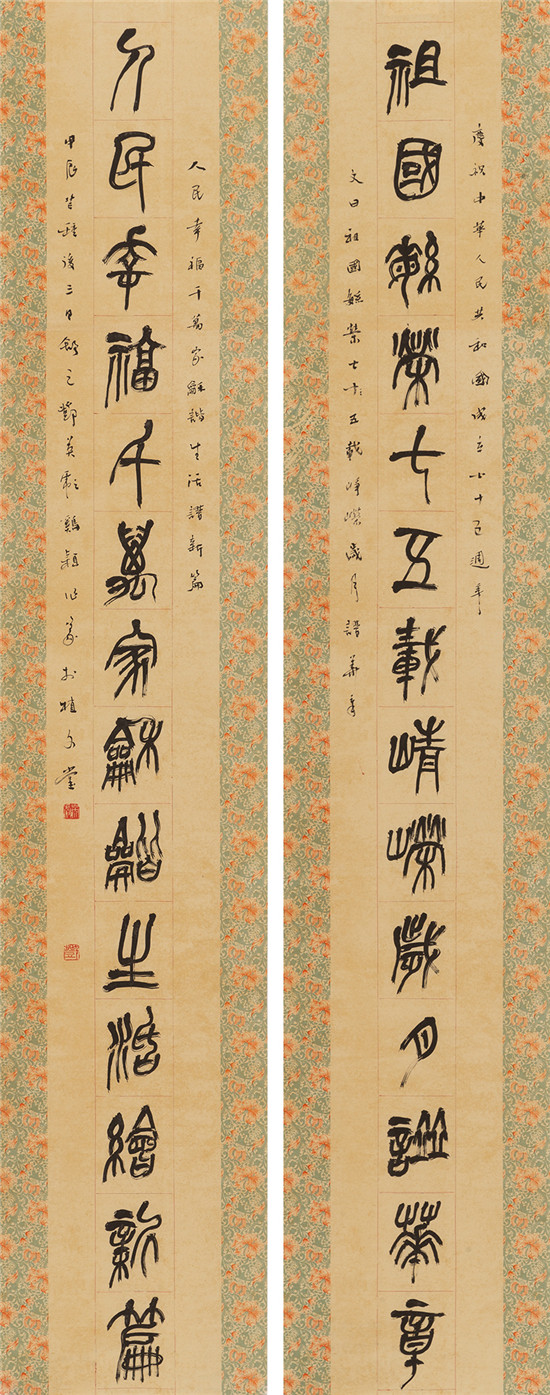 慶祝中華人民共和國成立七十五週年
祖國緐榮七五載崝嶸歲月譜華章
文曰祖國緐榮七十五載崢嶸歲月譜華章
人民幸福千萬家龢諧生活譜新篇
人民幸福千萬家龢龤生活繪新篇
甲辰芒種後三日 鄧英 鷄穎作篆於植 堂